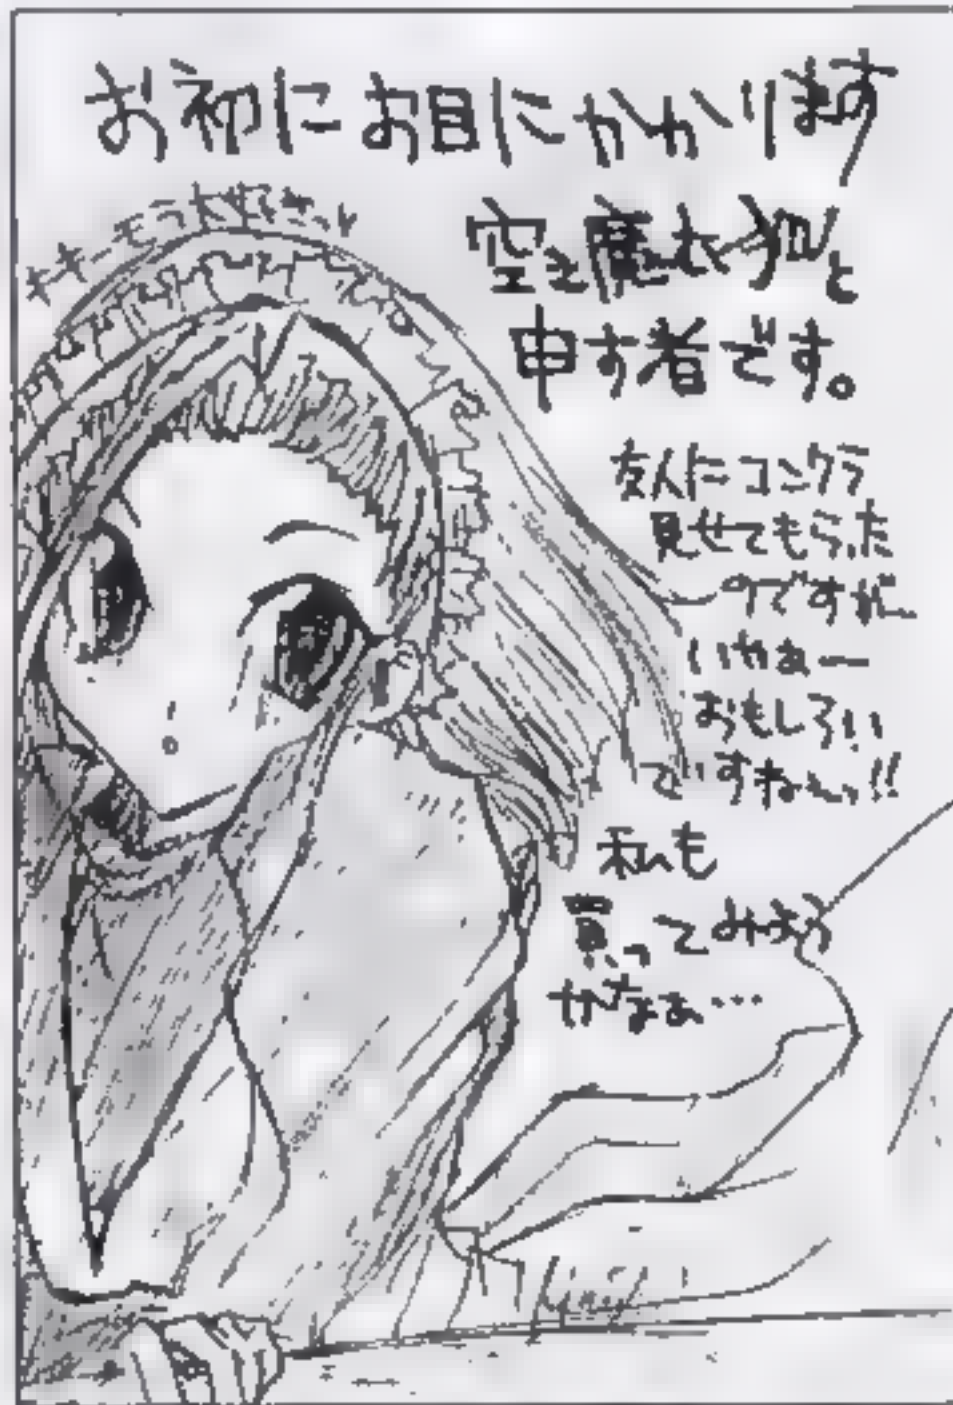 お初にお目にかかります
キキーモラ大好きっ
空之魔衣狐と
申す者です。
友人にコンクラ
見せてもらった
のですがー
いやぁー
おもしろい
ですねぇっ!!
私も
買ってみよう
かなぁ…